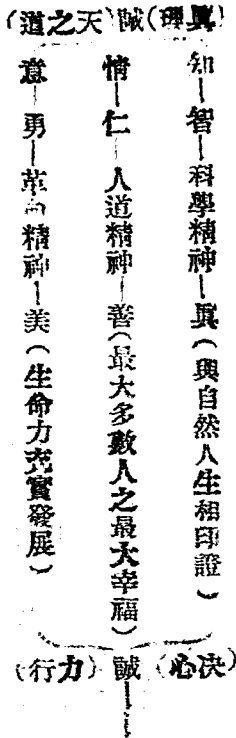 (真理)誠(天之道)
知—智—科學精神—眞(與自然人生相印證)
情—仁—人道精神—善(最大多數人之最大幸福)
意—勇—革命精神—美(生命力充實發展)
(決心)誠(力行)